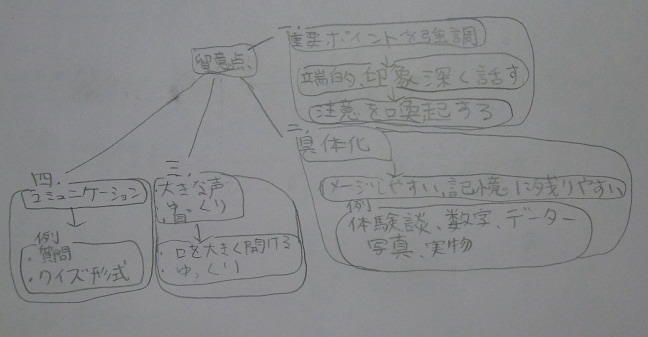 留意点、
一、
重要ポイントを強調
端的、印象深く話す
注意を喚起する
二、
具体化
イメージしやすい、記憶に残りやすい
例
体験談、数字、データー
写真、実物
三、
大きな声
ゆっくり
・口を大きく開ける
・ゆっくり
四、
コミュニケーション
例
・質問
・クイズ形式